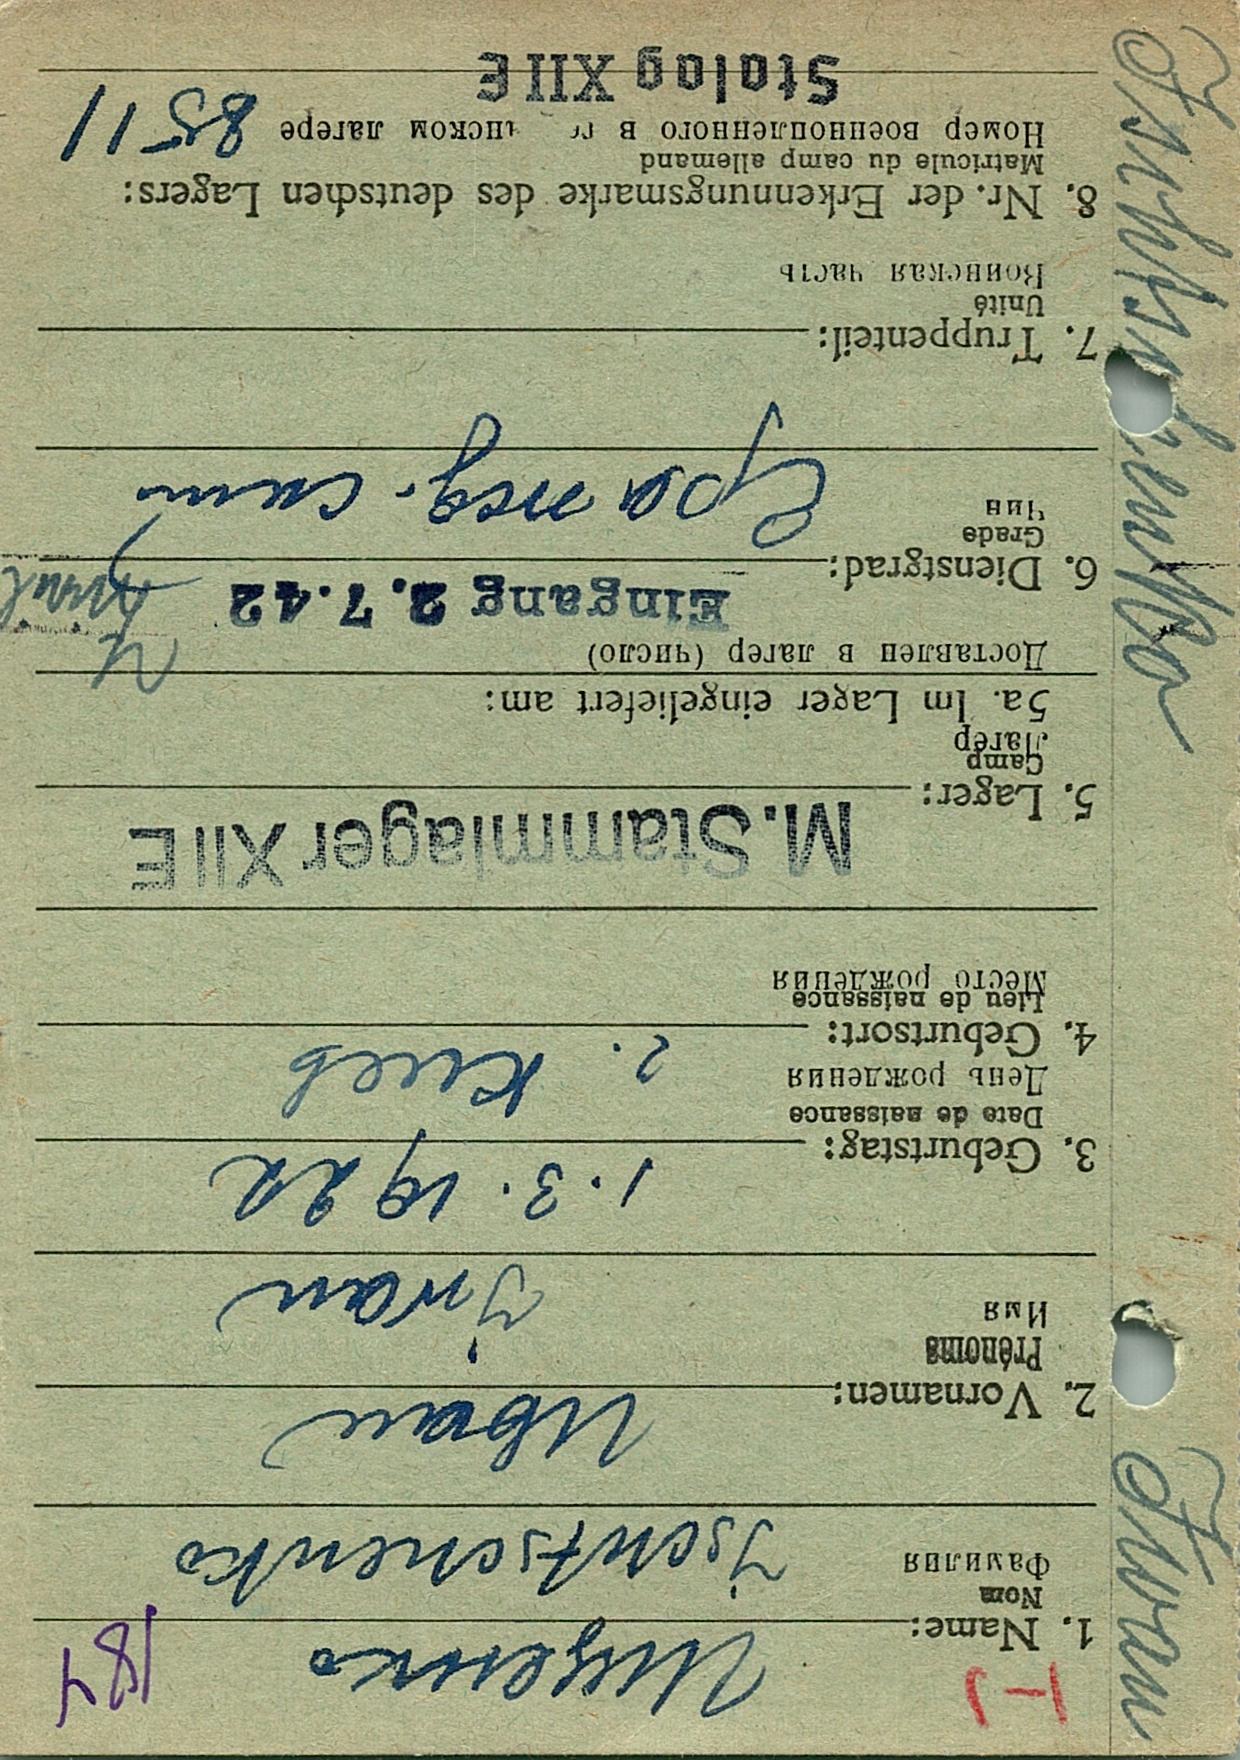 1-J
184
1. Name: Ищенко
Nom
Фамилия
Ischtschenko
2. Vornamen: Иван
Prénoms
Имя
Iwan
3. Geburtstag: 1.3.1922
Date de naissance
День рождения
4. Geburtsort: г. Киев
Lieu de naissance
Место рождения
5. Lager: M.Stammlager XII E
Camp
Лагерь
5a. Im Lager eingeliefert am:
Доставлен в лагер (число)
Eingang 2.7.42
6. Dienstgrad:
Grade
Чин
7. Truppenteil:
Unité
Воинская часть
8. Nr. der Erkennungsmarke des deutschen Lagers:
Matricule du camp allemand
Номер военнопленного в лагере 8511
Stalag XII E
Ischtschenko Iwan